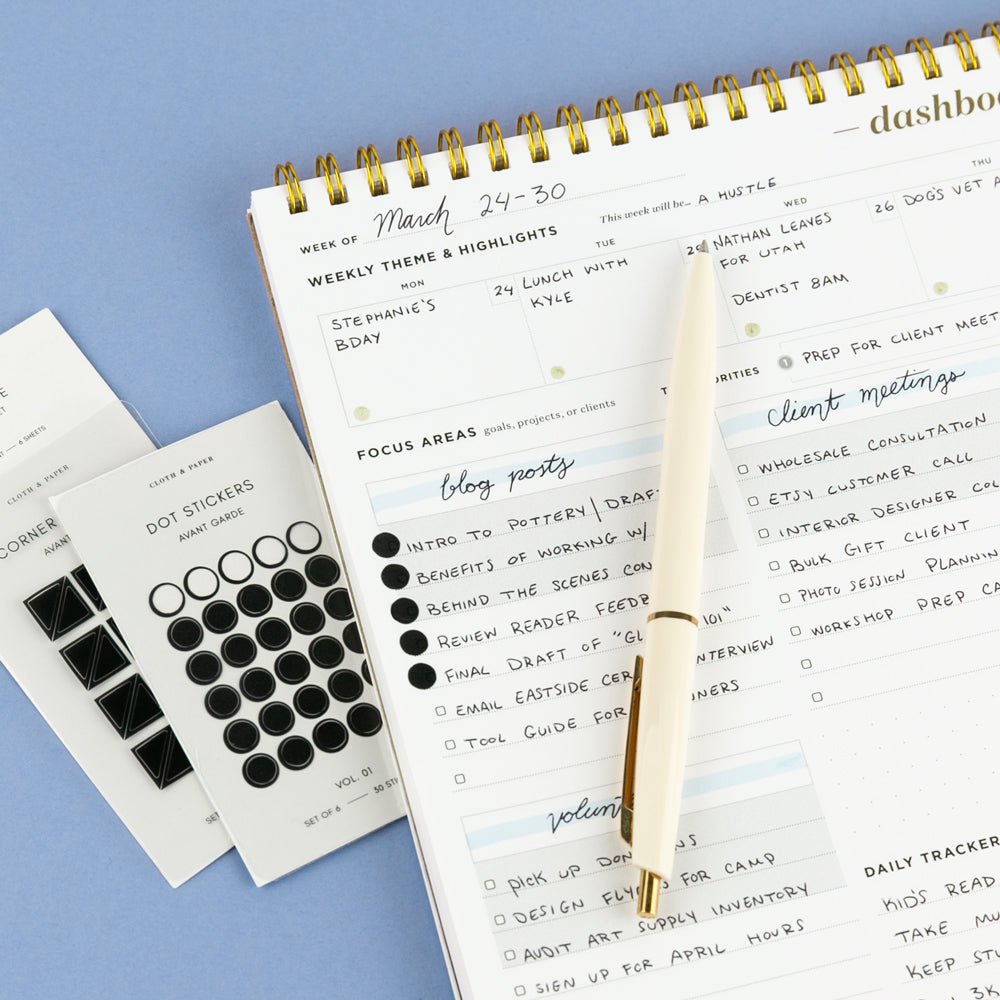 dashboa
WEEK OF March 24-30
This week will be... A HUSTLE
WEEKLY THEME & HIGHLIGHTS
MON
TUE
WED
THU
STEPHANIE'S
BDAY
24
LUNCH WITH
KYLE
NATHAN LEAVES
FOR UTAH
DENTIST 8AM
26
DOG'S VET A
1 PREP FOR CLIENT MEET
FOCUS AREAS goals, projects, or clients
blog posts
INTRO TO POTTERY/DRAF
BENEFITS OF WORKING W/
BEHIND THE SCENES CON
REVIEW READER FEEDB
FINAL DRAFT OF "GL 101"
EMAIL EASTSIDE CER NTERVIEW
TOOL GUIDE FOR NERS
client meetings
WHOLESALE CONSULTATION
ETSY CUSTOMER CALL
INTERIOR DESIGNER COL
BULK GIFT CLIENT
PHOTO SESSION PLANNIN
WORKSHOP PREP CA
volunt
PICK UP DON NS
DESIGN FLYERS FOR CAMP
AUDIT ART SUPPLY INVENTORY
SIGN UP FOR APRIL HOURS
DAILY TRACKER
KID'S READ
TAKE MU
KEEP STU
3K
CLOTH & PAPER
DOT STICKERS
AVANT GARDE
VOL. 01
SET OF 6 — 30 STI
6 SHEETS
CLOTH & PAPER
CORNER
AVAN
SET